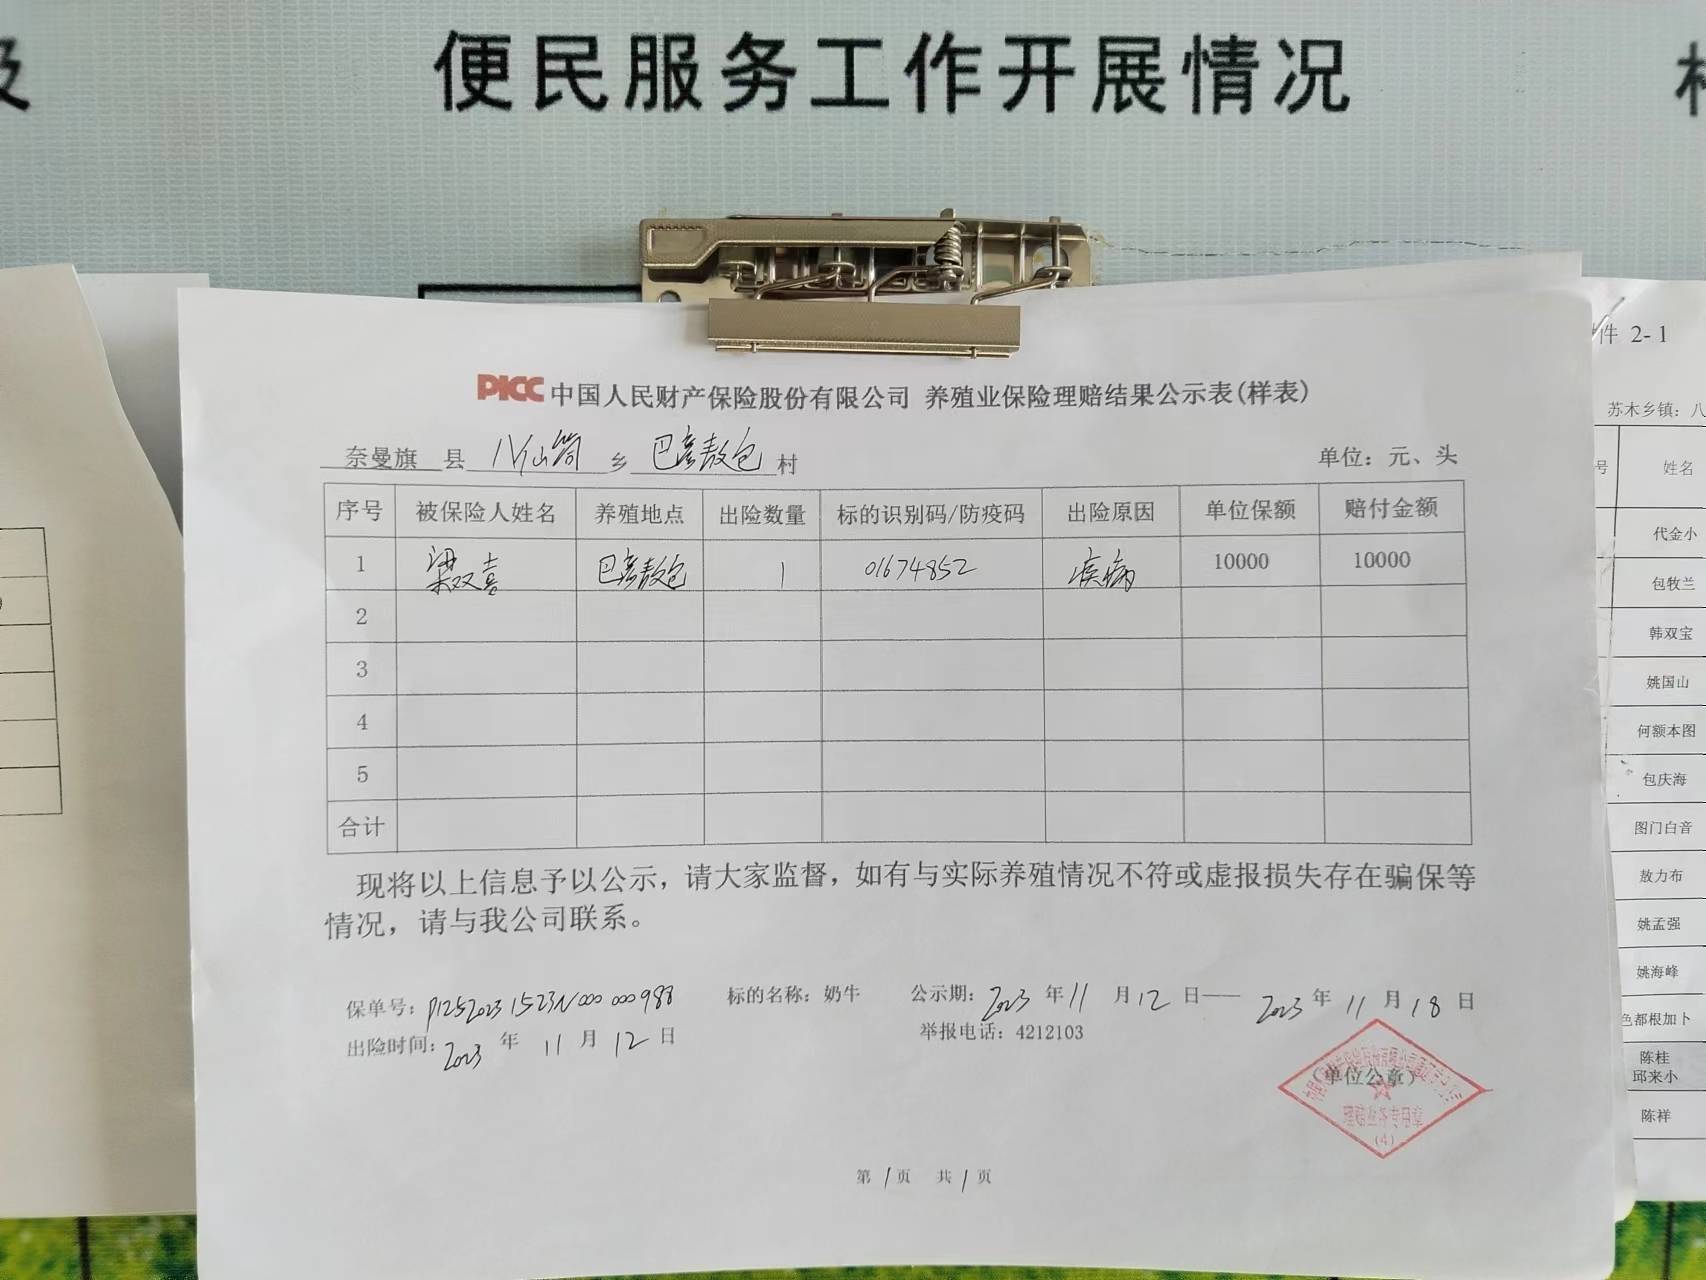 便民服务工作开展情况
PICC 中国人民财产保险股份有限公司 养殖业保险理赔结果公示表(样表)
奈曼旗 县 八仙筒 乡 巴彦敖包 村 单位：元、头
序号 被保险人姓名 养殖地点 出险数量 标的识别码/防疫码 出险原因 单位保额 赔付金额
1 梁双喜 巴彦敖包 1 01674852 疾病 10000 10000
2
3
4
5
合计
现将以上信息予以公示，请大家监督，如有与实际养殖情况不符或虚报损失存在骗保等
情况，请与我公司联系。
保单号：P12520231523N000000988 标的名称：奶牛 公示期：2023年11月12日——2023年11月18日
出险时间：2023年11月12日 举报电话：4212103
（单位公章）
理赔业务专用章
(4)
第1页 共1页
件 2-1
苏木乡镇：八
号 姓名
代金小
包牧兰
韩双宝
姚国山
何额本图
包庆海
图门白音
敖力布
姚孟强
姚海峰
色都根加卜
陈桂
邱来小
陈祥